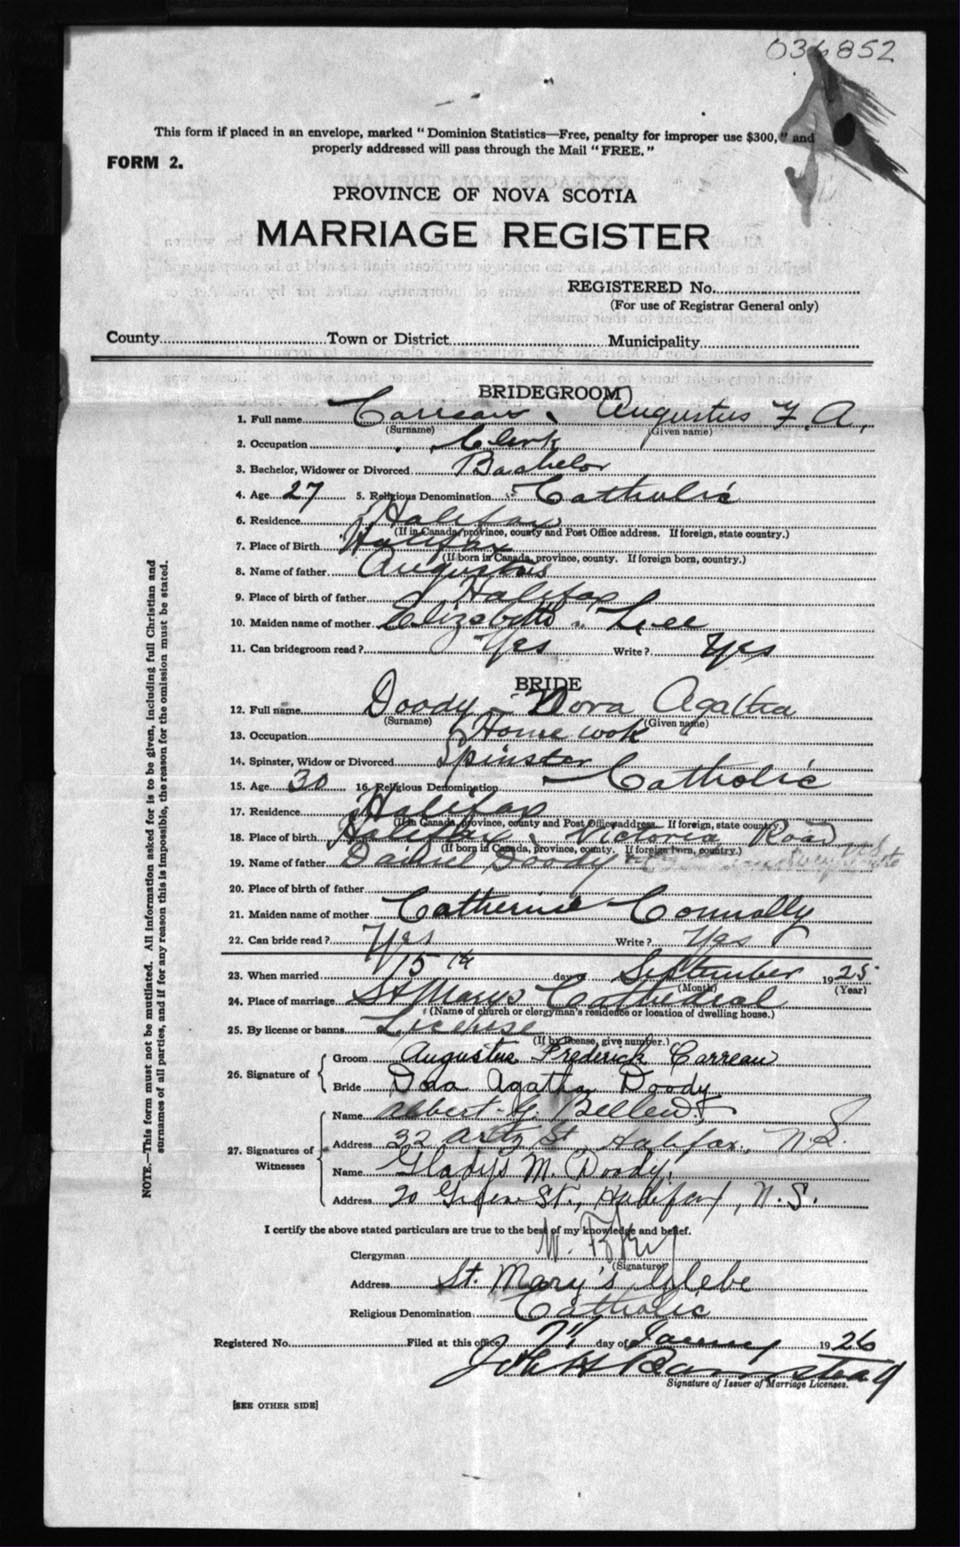 036852
This form if placed in an envelope, marked "Dominion Statistics—Free, penalty for improper use $300," and
properly addressed will pass through the Mail "FREE."
FORM 2.
PROVINCE OF NOVA SCOTIA
MARRIAGE REGISTER
REGISTERED No.
(For use of Registrar General only)
County Town or District Municipality
BRIDEGROOM
1. Full name Carreau, Augustus F. A.
(Surname) (Given name)
2. Occupation Clerk
3. Bachelor, Widower or Divorced Bachelor
4. Age 27 5. Religious Denomination Catholic
6. Residence Halifax
(If in Canada, province, county and Post Office address. If foreign, state country.)
7. Place of Birth Halifax
(If born in Canada, province, county. If foreign born, country.)
8. Name of father Augustus
9. Place of birth of father Halifax
10. Maiden name of mother Elizabeth Lee
11. Can bridegroom read? Yes Write? Yes
BRIDE
12. Full name Doody - Dora Agatha
(Surname) (Given name)
13. Occupation House work
14. Spinster, Widow or Divorced Spinster
15. Age 30 16. Religious Denomination Catholic
17. Residence Halifax
(If in Canada, province, county and Post Office address. If foreign, state country.)
18. Place of birth Halifax, Victoria Road
(If born in Canada, province, county. If foreign born, country.)
19. Name of father Daniel Doody
20. Place of birth of father
21. Maiden name of mother Catherine Connolly
22. Can bride read? Yes Write? Yes
23. When married 15th day of September 1925
(Month) (Year)
24. Place of marriage St Marys Cathedral
(Name of church or clergyman's residence or location of dwelling house.)
25. By license or banns License
(If by license, give number.)
26. Signature of
Groom Augustus Frederick Carreau
Bride Dora Agatha Doody
27. Signatures of Witnesses
Name Albert G. Bellew
Address 32 Artz St, Halifax, N.S.
Name Gladys M. Doody
Address 70 Green St., Halifax, N.S.
I certify the above stated particulars are true to the best of my knowledge and belief.
Clergyman W.
(Signature)
Address St. Mary's Glebe
Religious Denomination Catholic
Registered No. Filed at this office day of January 1926
John H Barnstead
Signature of Issuer of Marriage Licenses.
[SEE OTHER SIDE]
NOTE.—This form must not be mutilated. All information asked for is to be given, including full Christian and
surnames of all parties, and if for any reason this is impossible, the reason for the omission must be stated.